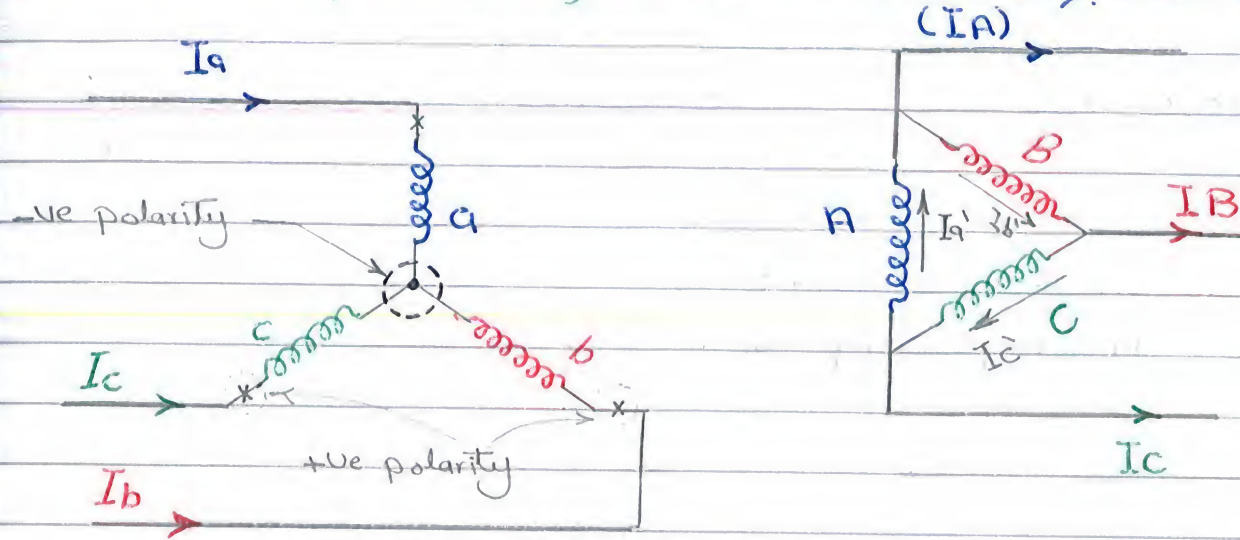 (IA)
Ia
B
-ve polarity
a
A
Ia'
IB
c
b
C
Ic'
Ic
+ve polarity
Ic
Ib